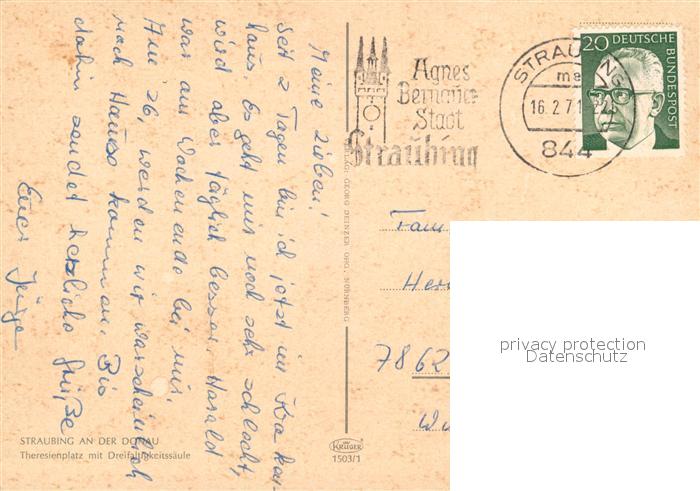 Meine Lieben!
Seit 2 Tagen bin ich jetzt im Kra kan-
haus. Es geht mir noch sehr schlecht,
wird aber täglich besser. Harald
war am Wochenende bei mir.
Am 26. werden wir warscheinlich
nach Hause kommen. Bis
dahin sendet herzliche Grüße
Euer
STRAUBING AN DER DONAU
Theresienplatz mit Dreifaltigkeitssäule
VERLAG: GEORG DEINZER OHG, NÜRNBERG
KRÜGER
1503/1
Agnes
Bernauer
Stadt
Straubing
STRAUBING
16.2.71
844
20 DEUTSCHE
BUNDESPOST
Fam
Her
7862
privacy protection
Datenschutz